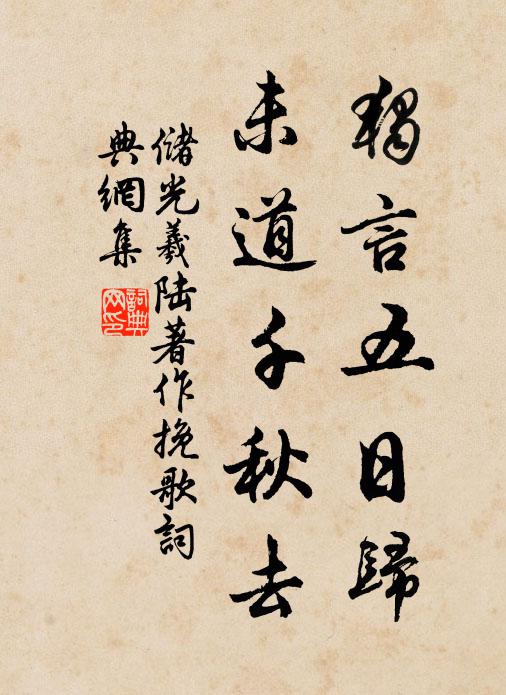 獨言五日歸
未道千秋去
儲光羲陸著作挽歌詞
典網集
詞典网印